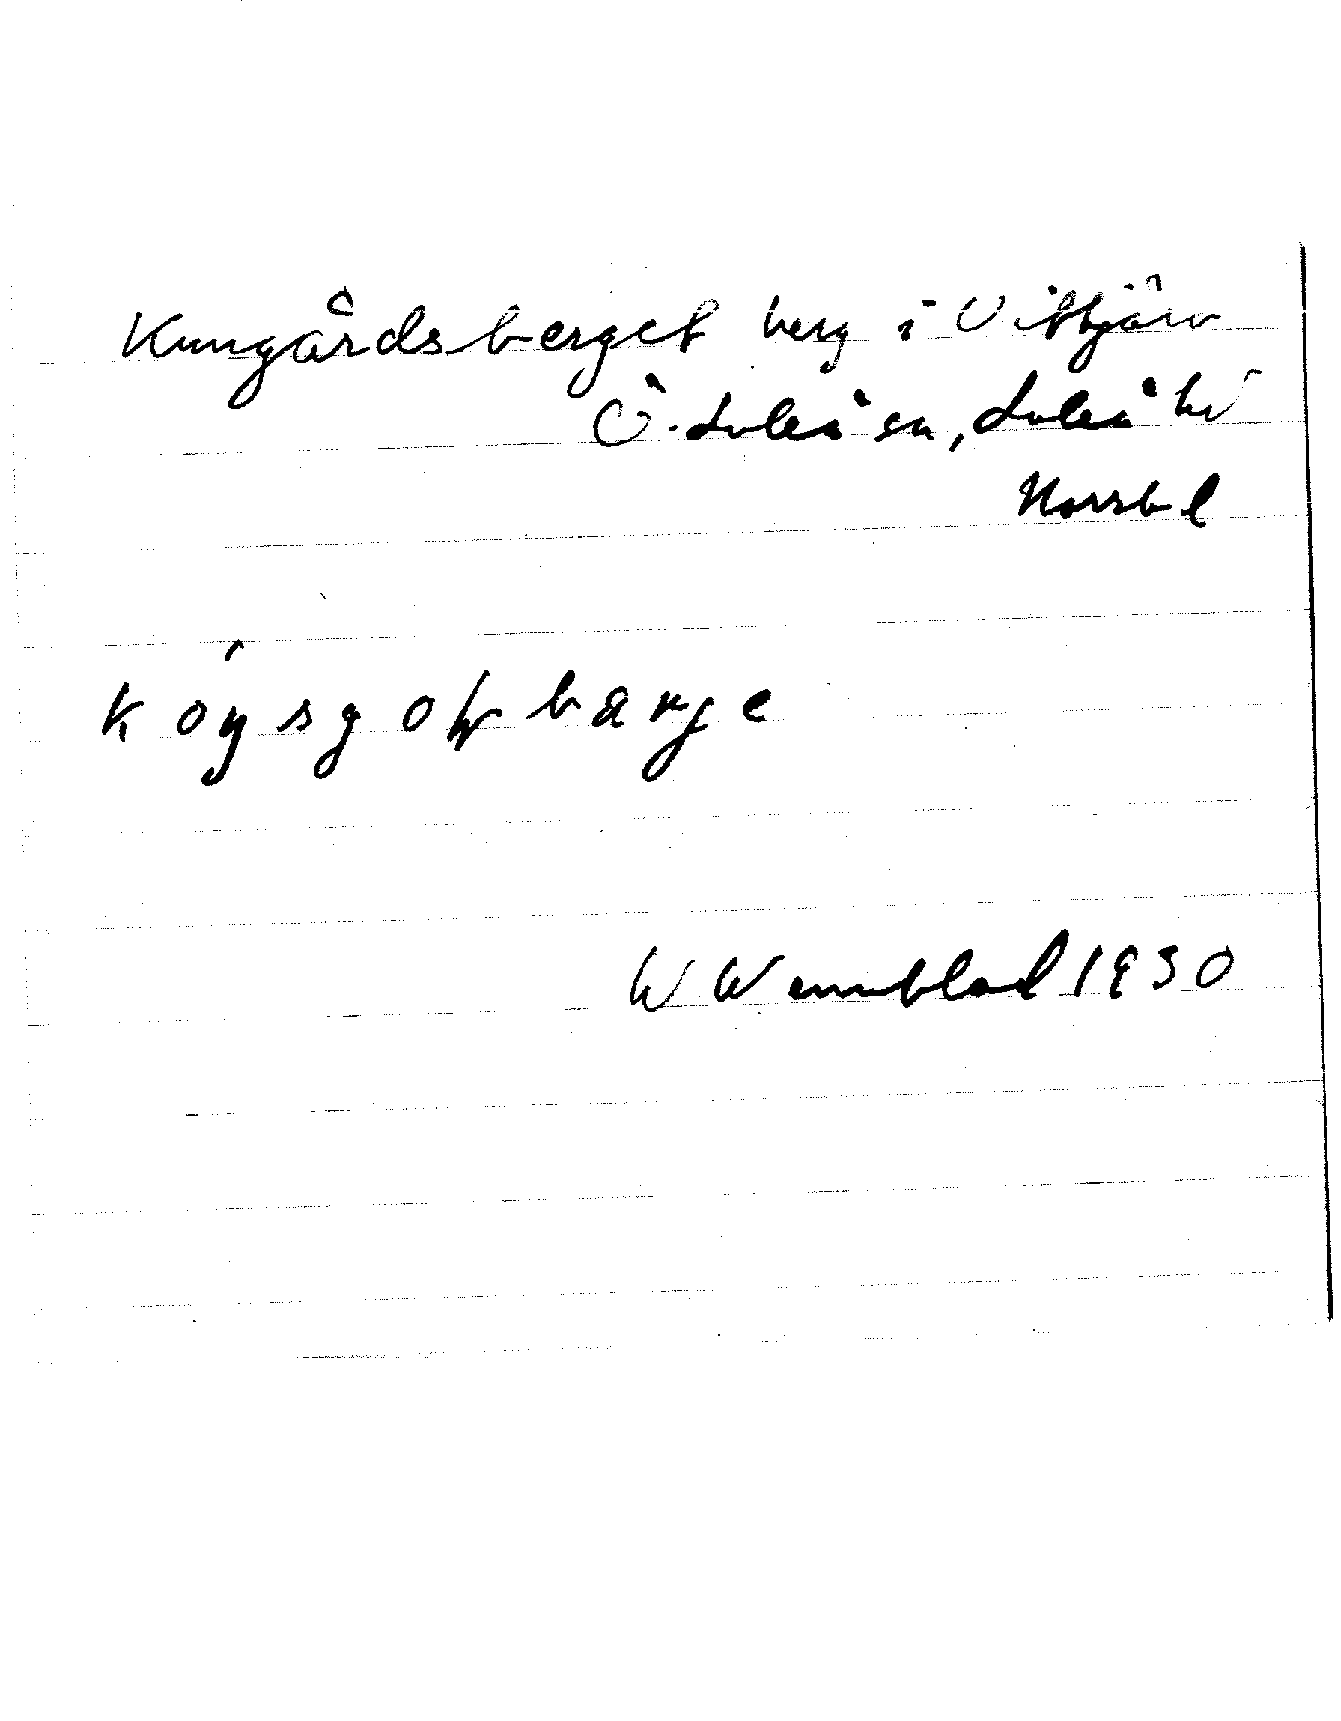 Kungårdsberget berg i Vittjärv
Ö. Luleå sn, Luleå hd
Norrb l
W Wennblad 1930